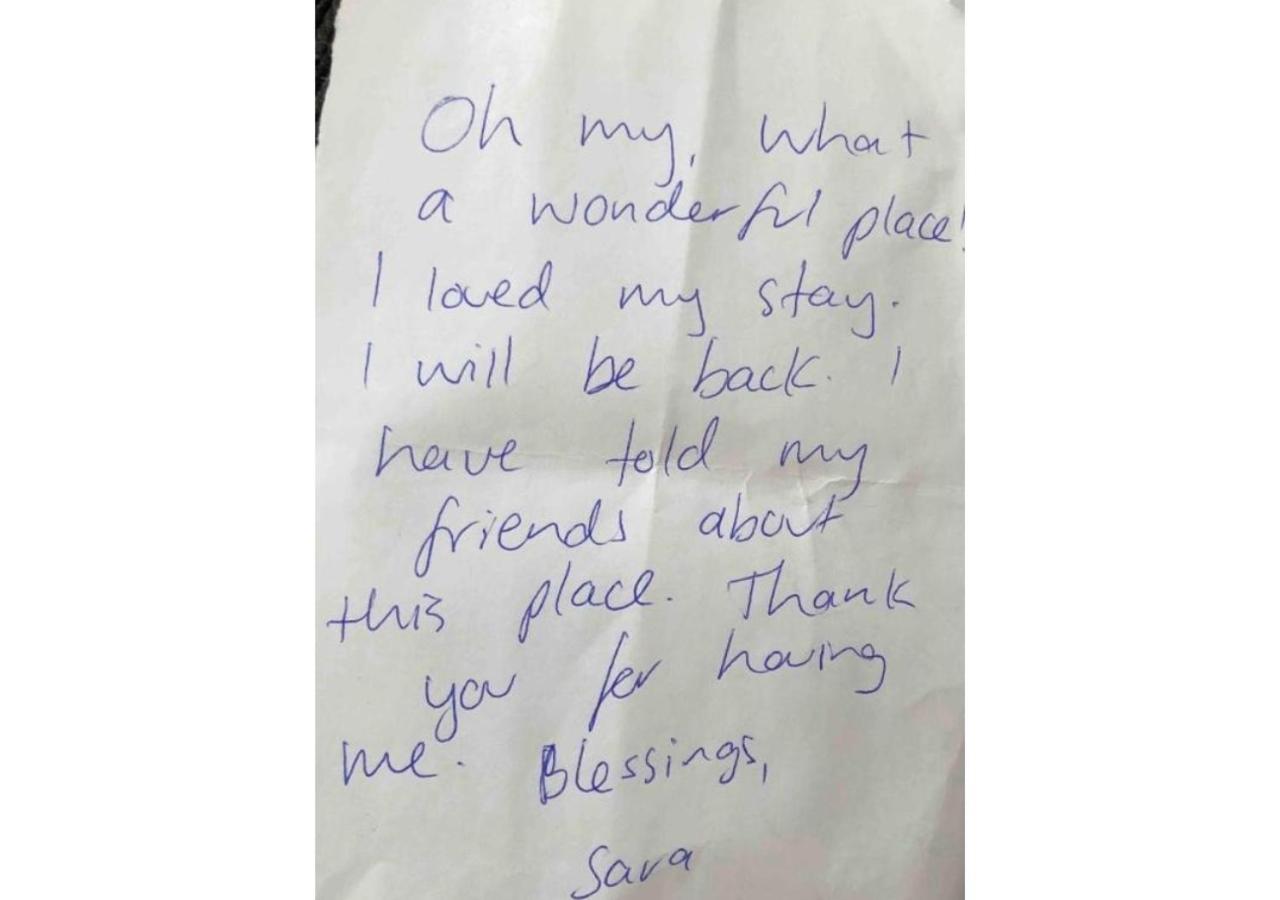 Oh my, what
a wonderful place!
I loved my stay.
I will be back. I
have told my
friends about
this place. Thank
you for having
me. Blessings,
Sara